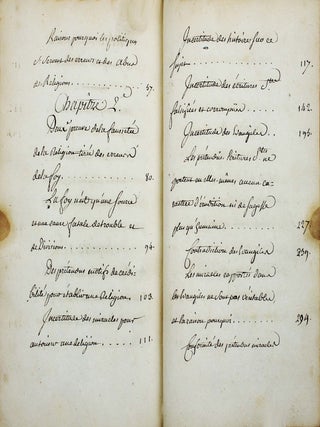 Raisons pourquoi les politiques
se servent des erreurs et des abus
des Religions . . . . . . 57.
Chapitre 2.
Deuxe preuve de la fausseté
de la Religion tirée des erreurs
de la foy . . . . . . . . . 80.
La foy n'est qu'une source
et une cause fatale de trouble et
de Divisions . . . . . . . 94.
Des pretendus motifs de credi-
bilité pour établir une Religion . 103.
Incertitude des miracles pour
autoriser une religion . . . . . 111.
Incertitude des histoires sur ce
sujet . . . . . . . . . . 117.
Incertitude des ecritures Stes
falsifiées et corrompües . . . . 142.
Incertitude des Evangiles . . . 195.
Les prétendües Ecritures Stes ne
portent en elles mêmes aucun ca-
ractere d'érudition ni de sagesse
plus qu'humaine . . . . . 227.
Contradiction des Evangiles . 239.
Les miracles rapportés dans
les Evangiles ne sont pas veritables
et la raison pourquoi . . . . . 294.
Conformité des pretendus miracles